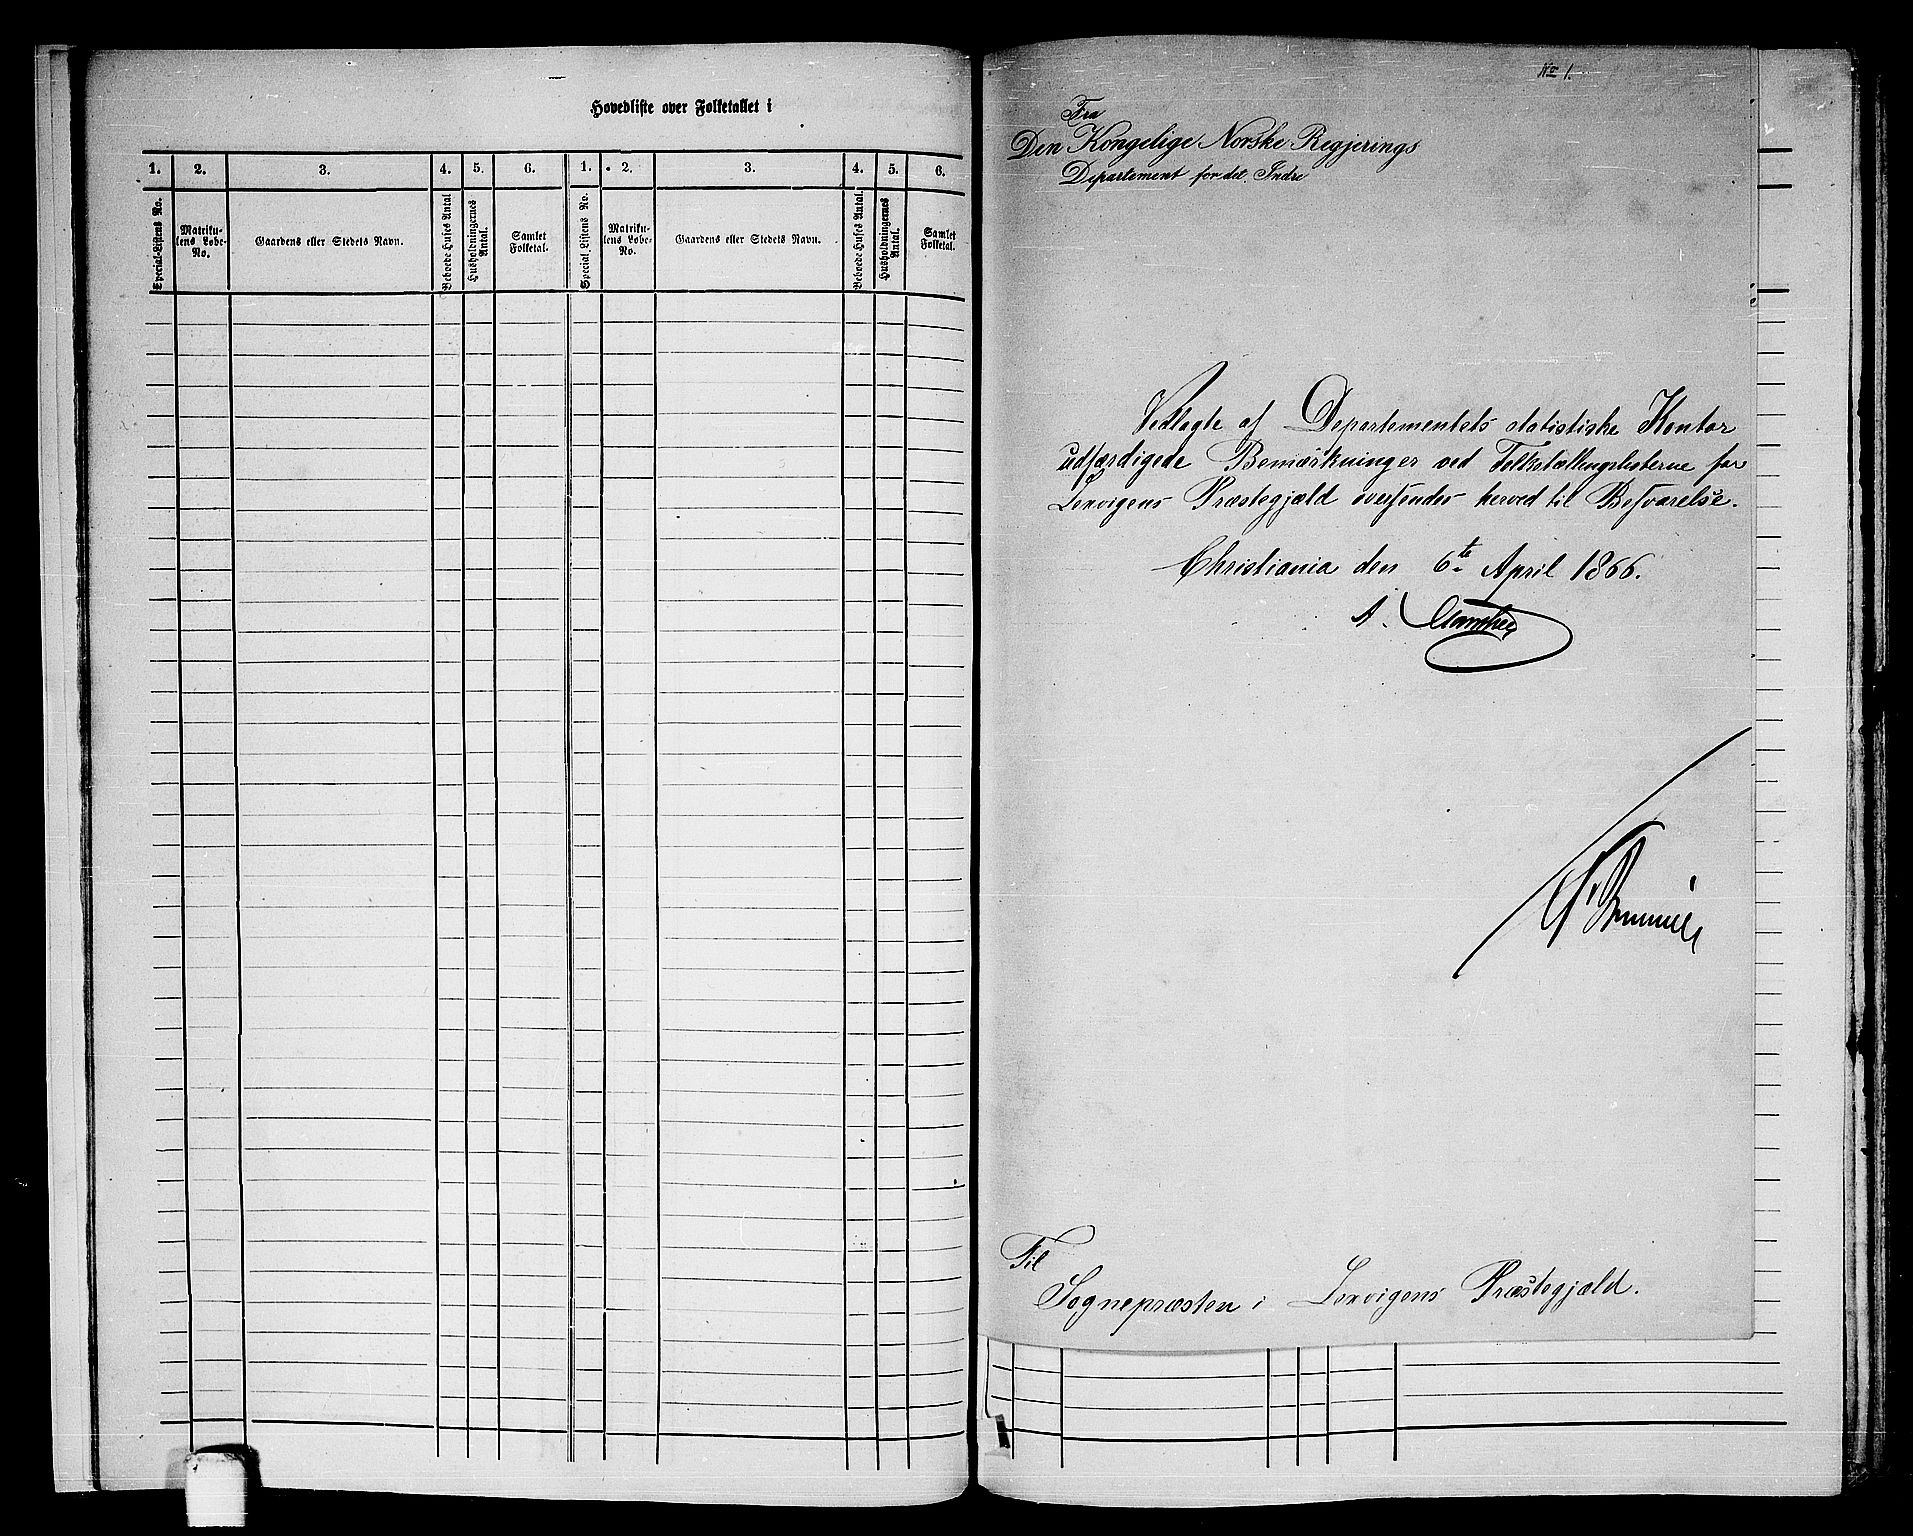 Hovedliste over Folketallet i
1. 2. 3. 4. 5. 6. 1. 2. 3. 4. 5. 6.
Special-Listens No.
Matriku-
lens Løbe-
No.
Gaardens eller Stedets Navn.
Beboede Huses Antal
Husholdningernes
Antal.
Samlet
Folketal.
Special-Listens No.
Matriku-
lens Løbe-
No.
Gaardens eller Stedets Navn.
Beboede Huses Antal.
Husholdningernes
Antal.
Samlet
Folketal.
No 1.
Fra
Den Kongelige Norske Regjerings
Departement for det Indre
Vedlagte af Departementets statistiske Kontor
udfærdigede Bemærkninger ved Folketællingslisterne for
Lexvigens Præstegjæld oversendes herved til Besvarelse.
Christiania den 6te April 1866.
Til
Sognepræsten i Lexvigens Præstegjæld.